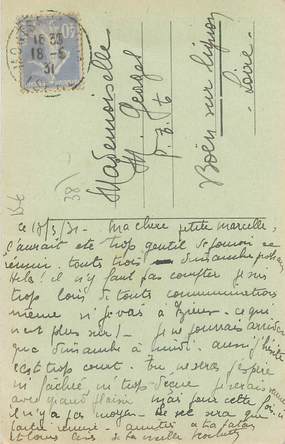 18 30
18 - 5
31
Mademoiselle
M. Georges
P. L. G
Boën sur Lignon
Loire
381
ce 18/5/31 - Ma chère petite Marcelle,
ç'aurait été trop gentil de pouvoir se
réunir toutes trois dimanche prochain
Hélas! il n'y faut pas compter je suis
trop loin de toutes communications
même si je vais à - ce qui
n'est plus sûr! - je ne pourrais arriver
que dimanche à midi. aussi j'hésite
c'est trop court. Tu ne seras j'espère
ni fâchée, ni trop déçue je serais venue
avec grand plaisir mais pour cette fois, ci
il n'y a pas moyen. Ce sera que
partie remise. amitiés à ta
et bons de ta vieille